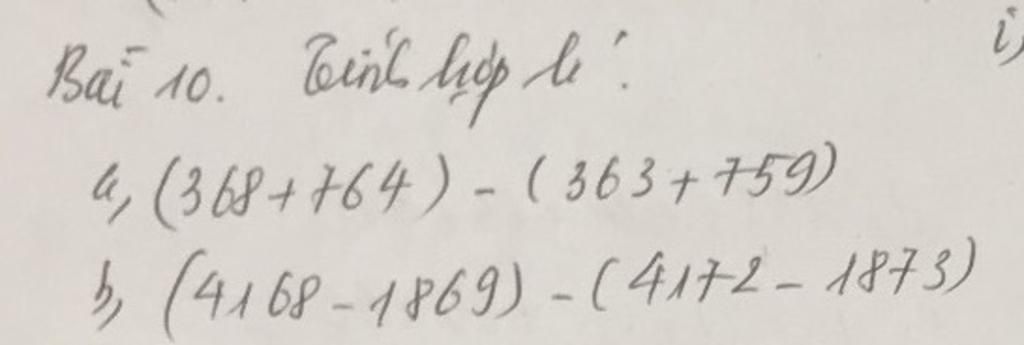 Bài 10. Tính hợp lí:
i,
a, (368 + 764) - (363 + 759)
b, (4168 - 1869) - (4172 - 1873)